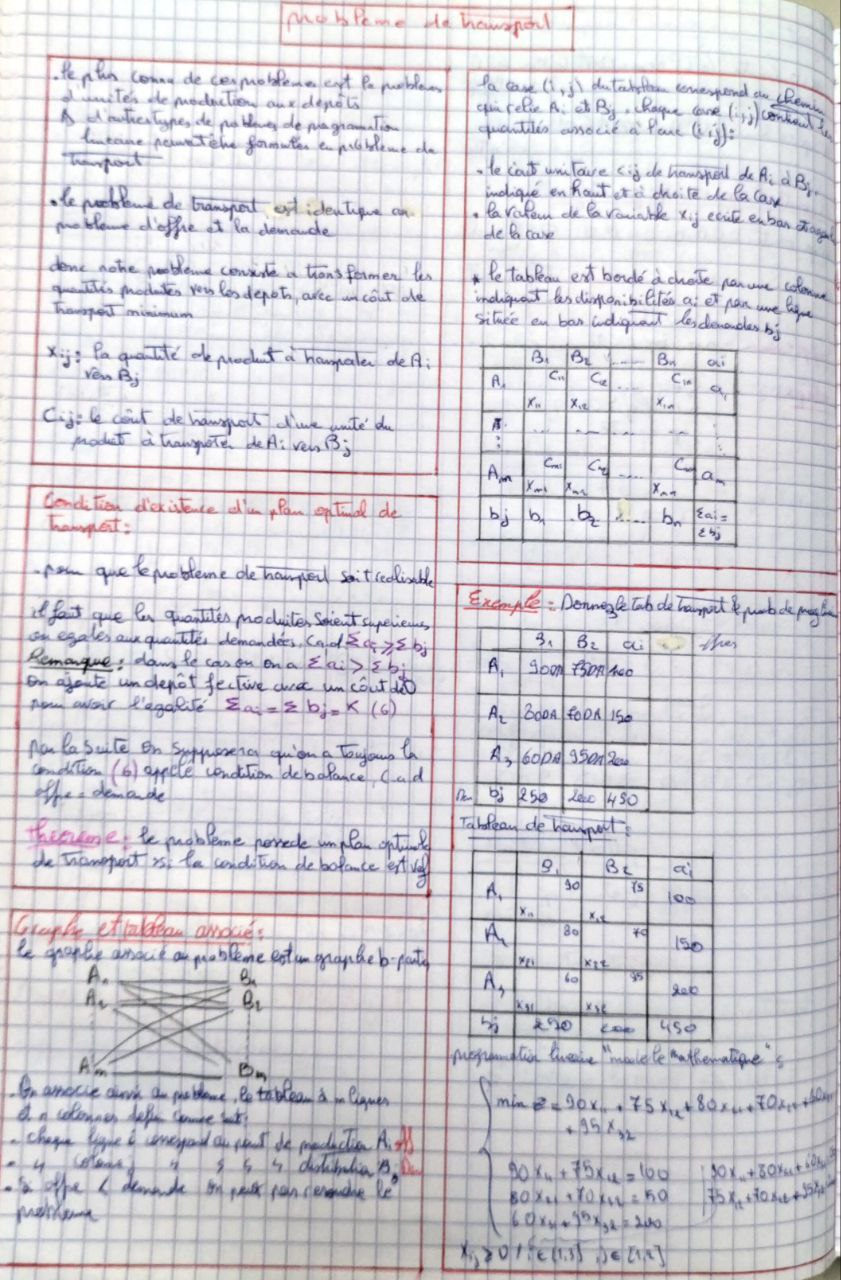 probleme de transport
. le plus connu de ces problemes est le probleme
d'unités de production aux depots
d'autres types de problemes de programation
lineaire peuvent être formules en probleme de
transport
. le probleme de transport est identique au
probleme d'offre et la demande
donc notre probleme consiste a transformer les
quantités produites vers les depots, avec un coût de
transport minimum
Xij: la quantité de produit à transporter de Ai
vers Bj
Cij: le coût de transport d'une unité du
produit à transpoter de Ai vers Bj
Condition d'existence d'un plan optimal de
transport:
. pour que le probleme de transport soit realisable
il faut que les quantités produites soient superieures
ou egales aux quantités demandées, c.a.d Σai ≥ Σbj
Remarque: dans le cas ou on a Σai > Σbj
on ajoute un depôt fective avec un coût de 0
pour avoir l'egalité Σai = Σbj = K (6)
par la suite on supposera qu'on a toujours la
condition (6) appelé condition de balance, c.a.d
offre = demande
theoreme: le probleme possede un plan optimale
de transport ssi la condition de balance est vérf
Graphe et tableau associé:
le graphe associé au probleme est un graphe b-parte
A1 B1
A2 B2
Am Bm
. On associe ainsi au probleme, le tableau à m lignes
et n colonnes defini comme suit:
. chaque ligne i correspond au point de production Ai off
. " colonne " " " " distribution Bj Dm
. si offre < demande on peux pas resoudre le
probleme
la case (i,j) du tableau correspond au chemin
qui relie Ai et Bj. chaque case (i,j) contient les
quantités associé à l'arc (i,j):
. le coût unitaire cij de transport de Ai à Bj,
indiqué en haut et à droite de la case
. la valeur de la variable xij ecrite en bas et à gauche
de la case
* le tableau est bordé à droite par une colonne
indiquant les disponibilités ai et par une ligne
située en bas indiquant les demandes bj
B1 B2 ..... Bn ai
A1 C11 C12 .... C1n a1
X11 X12 X1n
Am Cm1 Cm2 ..... Cmn am
Xm1 Xm2
bj b1 b2 ..... bn Σai =
Σbj
Exemple: Donnez le tab de transport & prob de prog line
B1 B2 ai
A1 90DA 75DA 100
A2 80DA 70DA 150
A3 60DA 95DA 200
bj 250 200 450
Tableau de transport:
B1 B2 ai
A1 90 75 100
x11 x12
A2 80 70 150
x21 x22
A3 60 95 200
x31 x32
bj 250 200 450
programation lineaire "modele mathematique":
min z = 90x11 + 75x12 + 80x21 + 70x22 + 60x31
+ 95x32
90x11 + 75x12 = 100
80x21 + 70x22 = 50
60x31 + 95x32 = 200
xij ≥ 0 / i ∈ [1,3] , j ∈ [1,2]